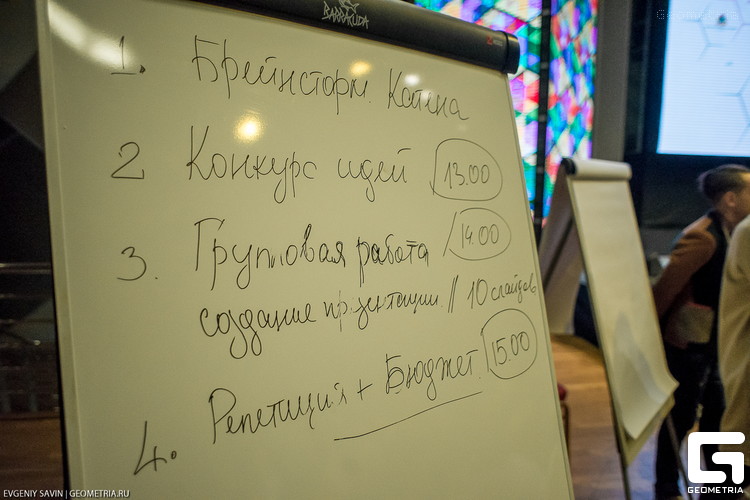 BARRACUDA
1. Брейнсторм. Катена
2 Конкурс идей 13.00
3. Групповая работа 14.00
создание презентации // 10 слайдов
4. Репетиция + Бюджет. 15.00
EVGENIY SAVIN | GEOMETRIA.RU
G
GEOMETRIA